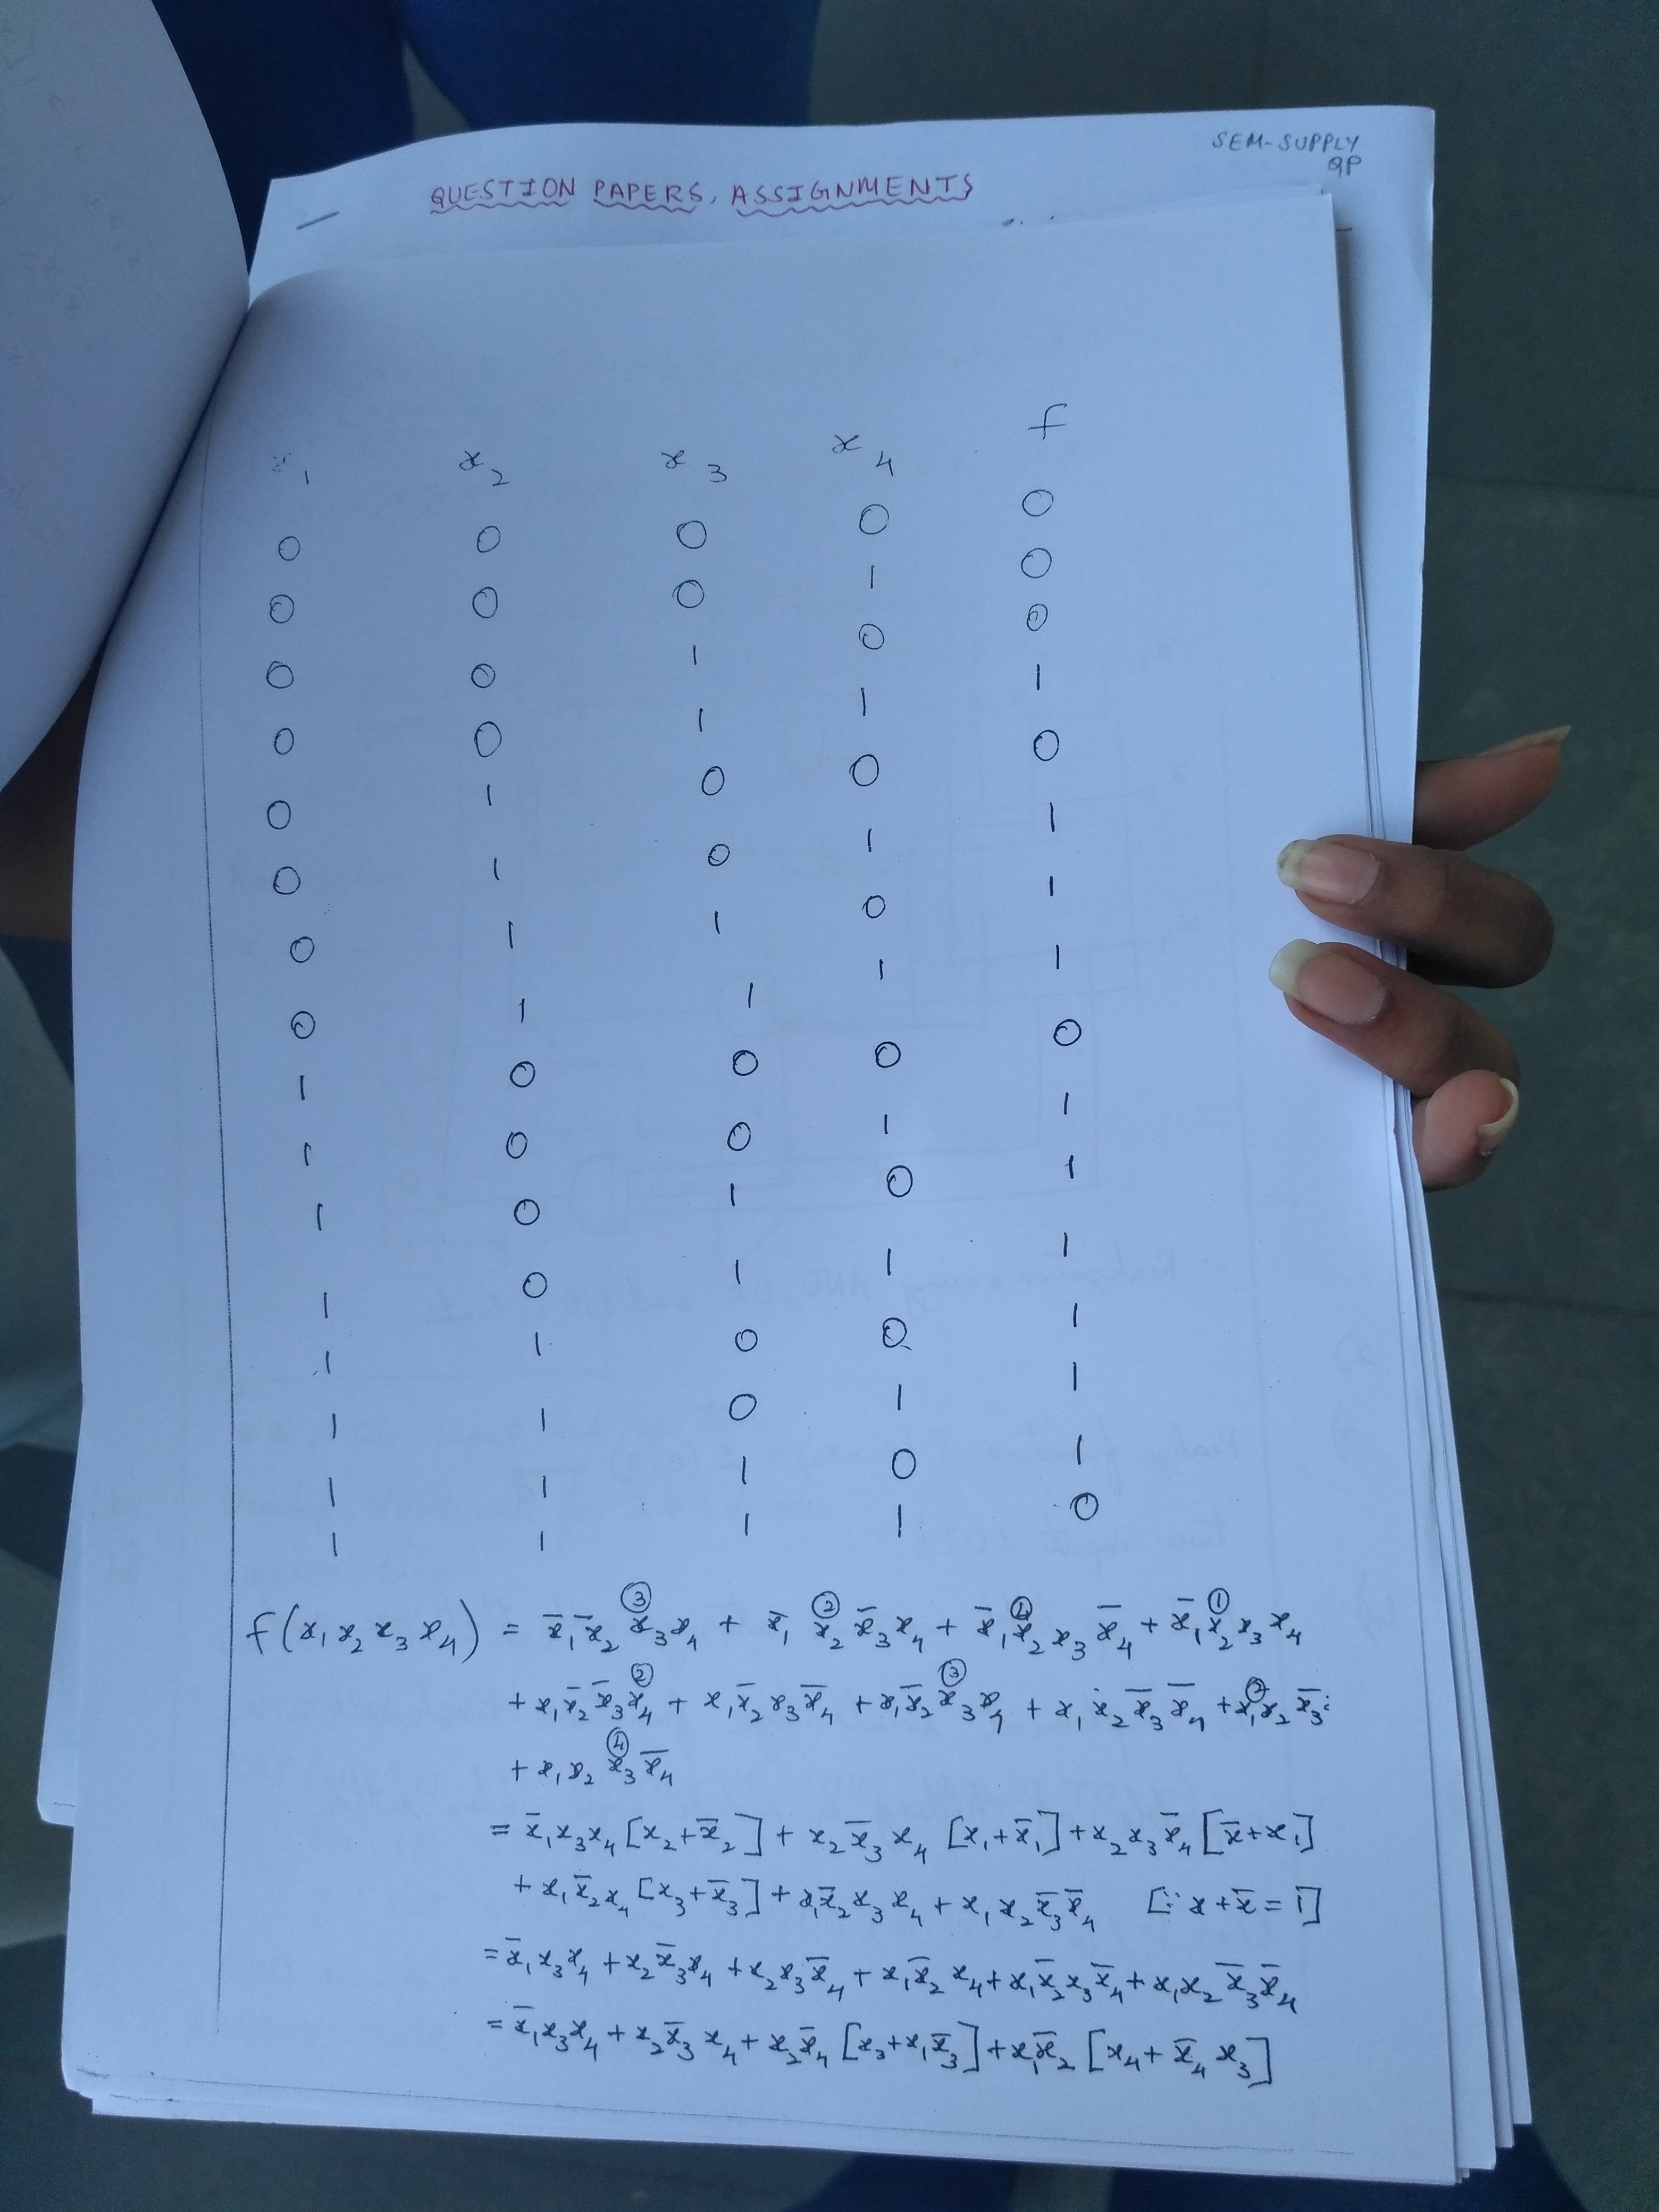 SEM-SUPPLY
QP
QUESTION PAPERS, ASSIGNMENTS
x₁ x₂ x₃ x₄ f
0 0 0 0 0
0 0 0 1 0
0 0 1 0 0
0 0 1 1 1
0 1 0 0 0
0 1 0 1 1
0 1 1 0 1
0 1 1 1 1
1 0 0 0 0
1 0 0 1 1
1 0 1 0 1
1 0 1 1 1
1 1 0 0 1
1 1 0 1 1
1 1 1 0 1
1 1 1 1 0
③ ② ④ ①
f(x₁ x₂ x₃ x₄) = x̄₁x̄₂x₃x₄ + x̄₁x₂x̄₃x₄ + x̄₁x₂x₃x̄₄ + x̄₁x₂x₃x₄
② ③ ②
+ x₁x̄₂x̄₃x₄ + x₁x̄₂x₃x̄₄ + x₁x̄₂x₃x₄ + x₁x₂x̄₃x̄₄ + x₁x₂x̄₃
④
+ x₁x₂x₃x̄₄
= x̄₁x₃x₄[x₂+x̄₂] + x₂x̄₃x₄[x₁+x̄₁] + x₂x₃x̄₄[x̄+x₁]
+ x₁x̄₂x₄[x₃+x̄₃] + x₁x̄₂x₃x₄ + x₁x₂x̄₃x̄₄ [∵ x+x̄=1]
= x̄₁x₃x₄ + x₂x̄₃x₄ + x₂x₃x̄₄ + x₁x̄₂x₄ + x₁x̄₂x₃x̄₄ + x₁x₂x̄₃x̄₄
= x̄₁x₃x₄ + x₂x̄₃x₄ + x₂x̄₄[x₃+x₁x̄₃] + x₁x̄₂[x₄+x̄₄x₃]